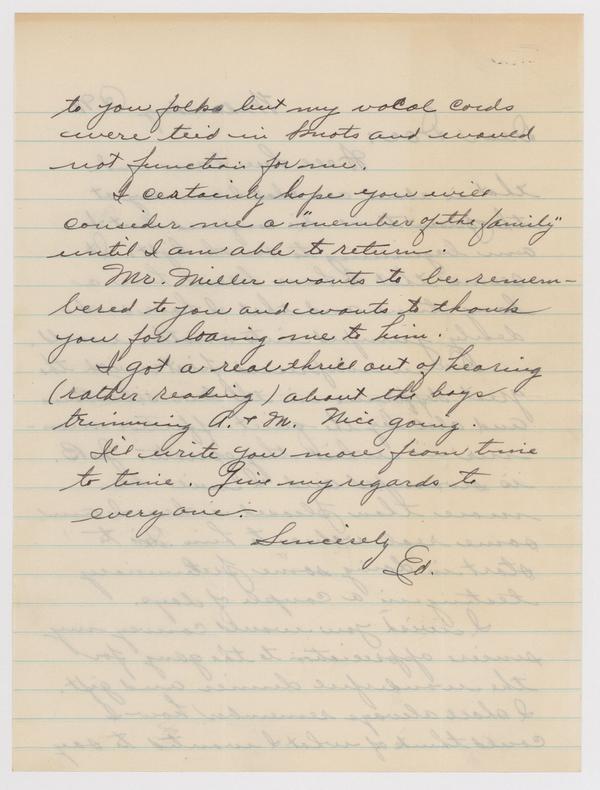 to you folks but my vocal cords
were tied in knots and would
not function for me.
I certainly hope you will
consider me a "member of the family"
until I am able to return.
Mr. Miller wants to be remem-
bered to you and wants to thank
you for loaning me to him.
I got a real thrill out of hearing
(rather reading) about the boys
trimming A. & M. Nice going.
I'll write you more from time
to time. Give my regards to
everyone.
Sincerely
Ed.